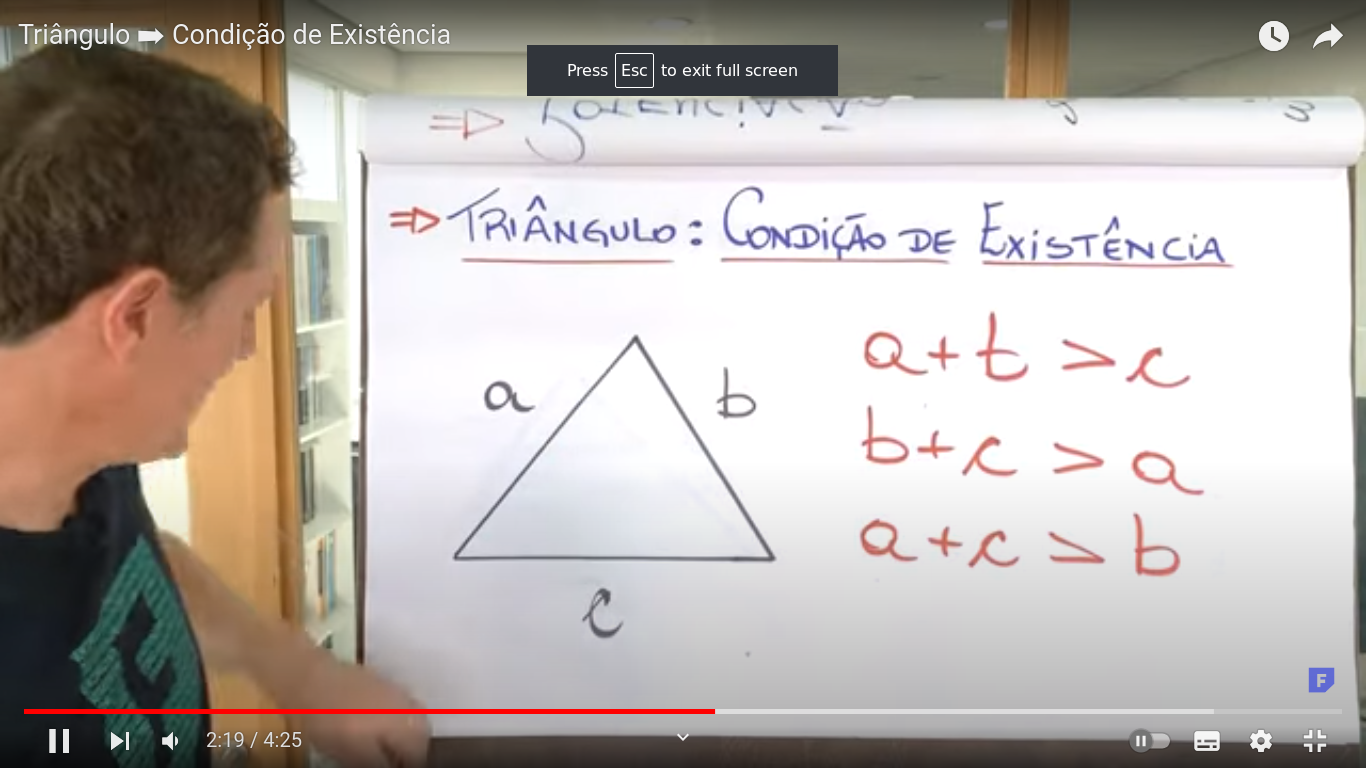 Triângulo ➡ Condição de Existência
Press Esc to exit full screen
⇒ TRIÂNGULO: CONDIÇÃO DE EXISTÊNCIA
a
b
c
a+t > c
b+c > a
a+c > b
F
2:19 / 4:25